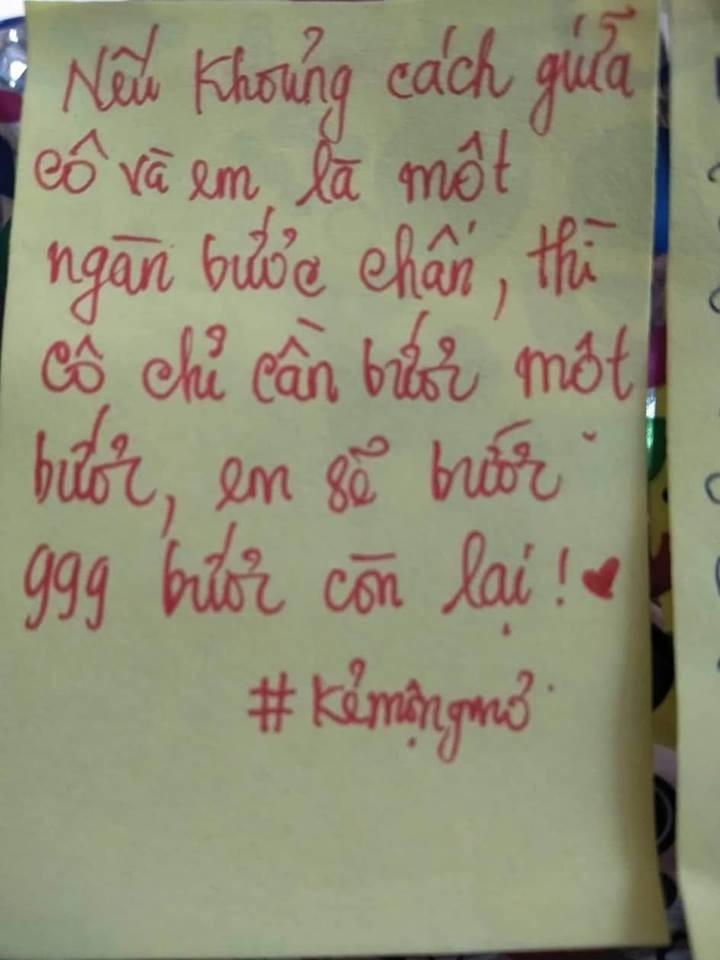 Nếu khoảng cách giữa
cô và em là một
ngàn bước chân, thì
cô chỉ cần bước một
bước, em sẽ bước
999 bước còn lại! ♥
#Kẻmộngmơ